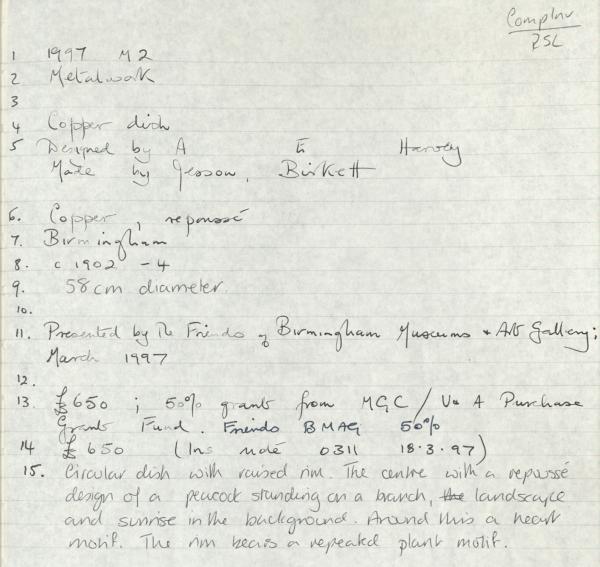 Complnr
RSL
1 1997 M2
2 Metalwork
3
4 Copper dish
5 Designed by A E Harvey
Made by Jesson, Birkett
6. Copper, repoussé
7. Birmingham
8. c 1902 - 4
9. 58cm diameter.
10.
11. Presented by The Friends of Birmingham Museums + Art Gallery;
March 1997
12.
13 £650 ; 50% grant from MGC / V & A Purchase
Grant Fund. Friends BMAG 50%
14 £650 (Ins note 0311 18.3.97)
15. Circular dish with raised rim. The centre with a repoussé
design of a peacock standing on a branch, the landscape
and sunrise in the background. Around this a heart
motif. The rim bears a repeated plant motif.